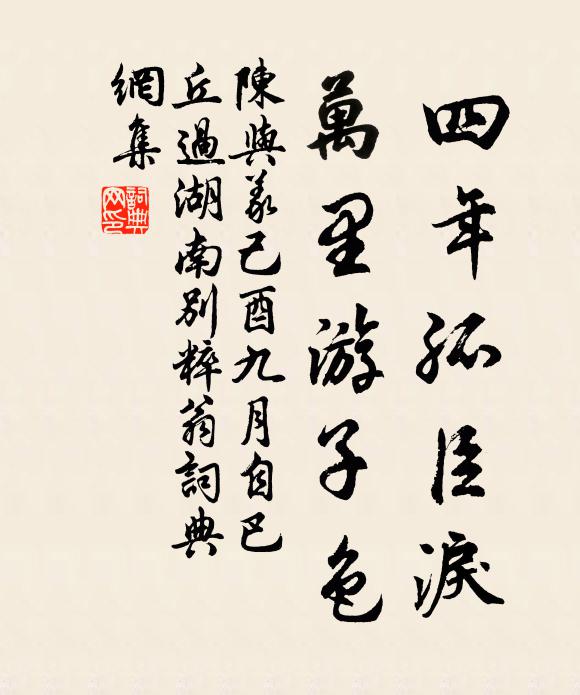 四年孤臣淚
萬里游子色
陳與義己酉九月自巴
丘過湖南別粹翁詞典
網集
詞典
网印